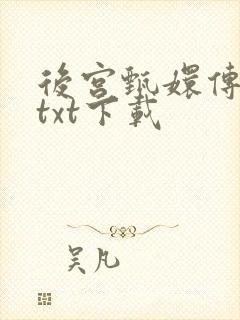 後宮甄嬛傳
txt下載
吴凡